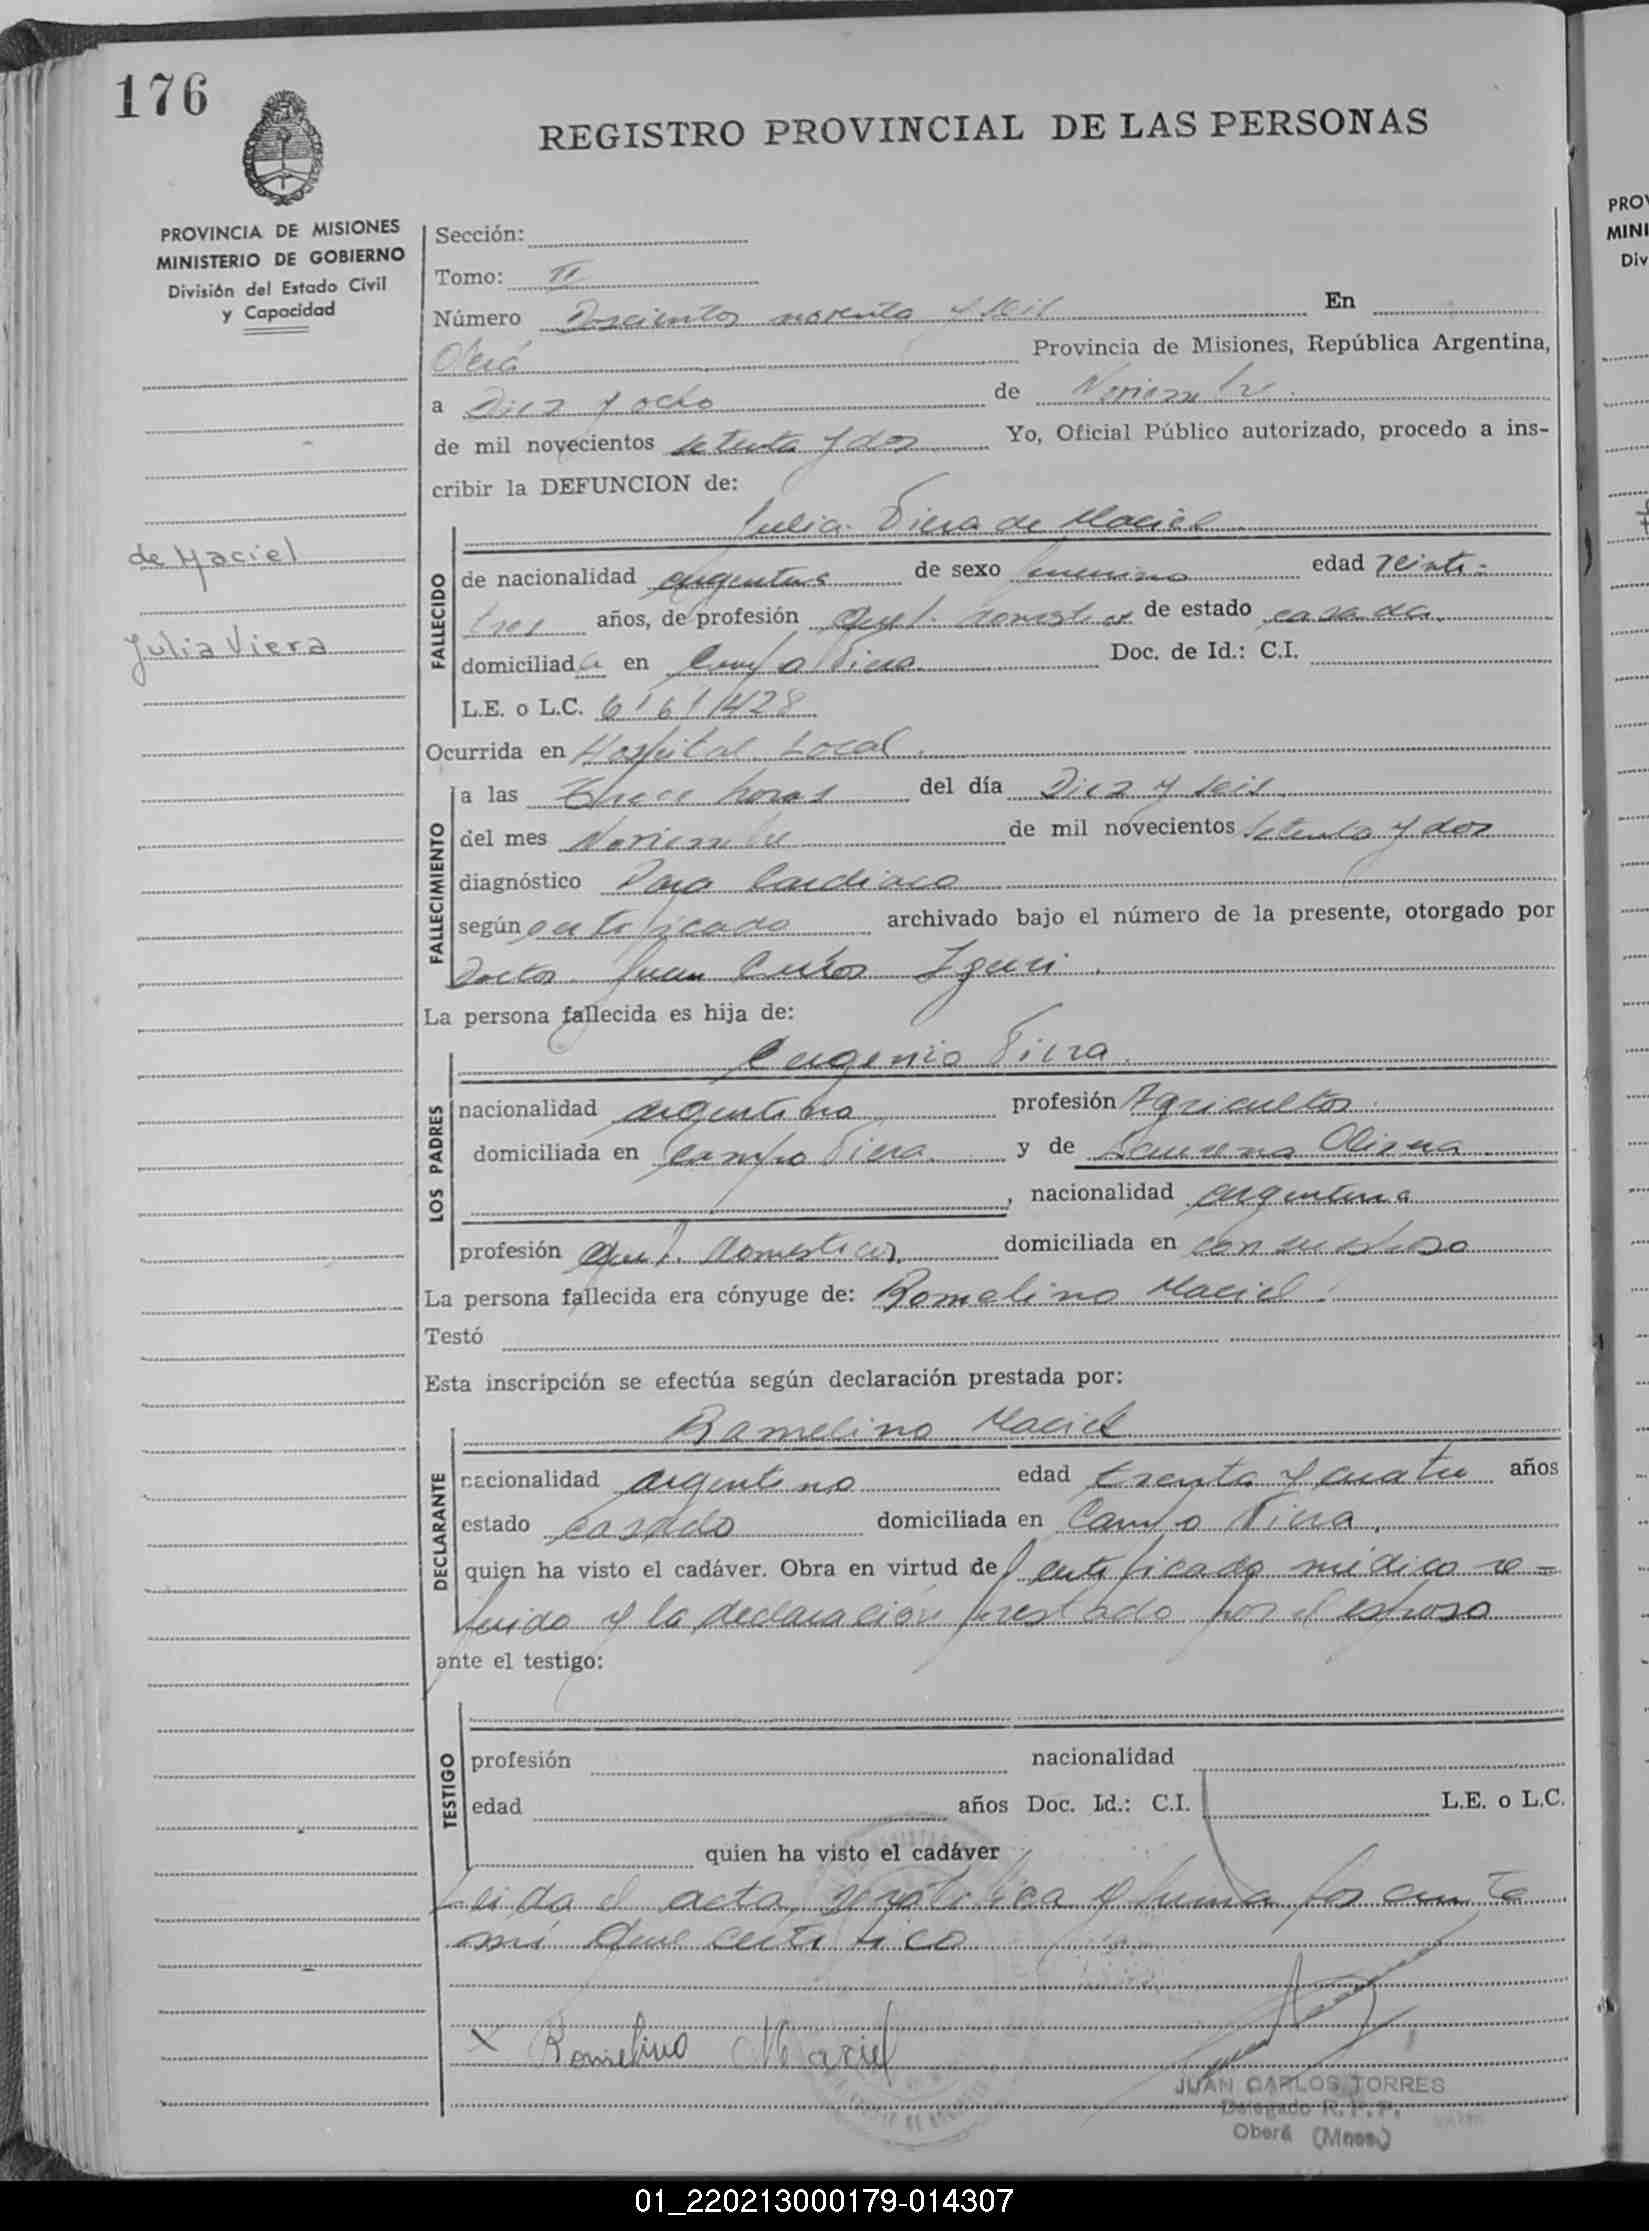 176
REGISTRO PROVINCIAL DE LAS PERSONAS
PROVINCIA DE MISIONES
MINISTERIO DE GOBIERNO
División del Estado Civil
y Capacidad
de Maciel
Julia Viera
Sección:
Tomo: II
Número Doscientos noventa y seis En
Oberá Provincia de Misiones, República Argentina,
a Diez y ocho de Noviembre
de mil novecientos setenta y dos Yo, Oficial Público autorizado, procedo a ins-
cribir la DEFUNCION de:
Julia Viera de Maciel
FALLECIDO
de nacionalidad argentina de sexo femenino edad veinti-
tres años, de profesión domesticos de estado casada
domiciliada en Campo Viera Doc. de Id.: C.I.
L.E. o L.C. 6/61/1428
Ocurrida en Hospital Local
FALLECIMIENTO
a las Trece horas del día Diez y seis
del mes Noviembre de mil novecientos setenta y dos
diagnóstico Paro Cardiaco
según certificado archivado bajo el número de la presente, otorgado por
Doctor Juan Carlos
La persona fallecida es hija de:
Eugenio Viera
LOS PADRES
nacionalidad argentina profesión Agricultor
domiciliada en Campo Viera y de Olivera
, nacionalidad argentina
profesión domesticos domiciliada en con su esposo
La persona fallecida era cónyuge de: Romelino Maciel
Testó
Esta inscripción se efectúa según declaración prestada por:
Ramelino Maciel
DECLARANTE
nacionalidad argentino edad trenta y cuatro años
estado casado domiciliada en Campo Viera
quien ha visto el cadáver. Obra en virtud del certificado médico re-
ferido y la declaración prestado por el esposo
ante el testigo:
TESTIGO
profesión nacionalidad
edad años Doc. Id.: C.I. L.E. o L.C.
quien ha visto el cadáver
Leida el acta, se ratifica y firma por ante
mi que certifico
x Romelino Maciel
JUAN CARLOS TORRES
Delegado R. P. P.
Oberá (Mnes.)
PROV
MINI
Div
01_220213000179-014307